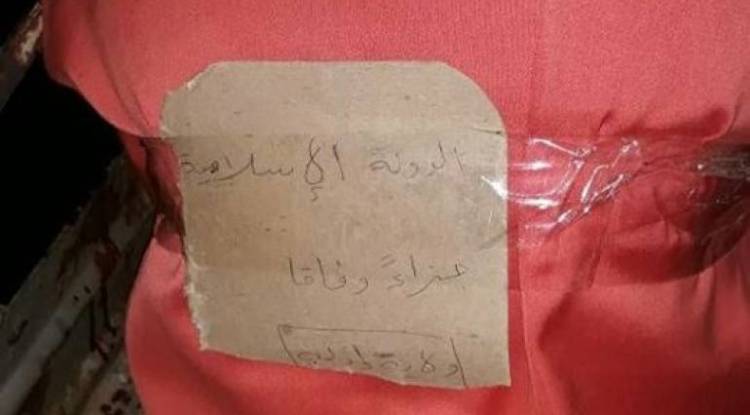 الدولة الإسلامية
جزاءً وفاقا
ولاية إدلب